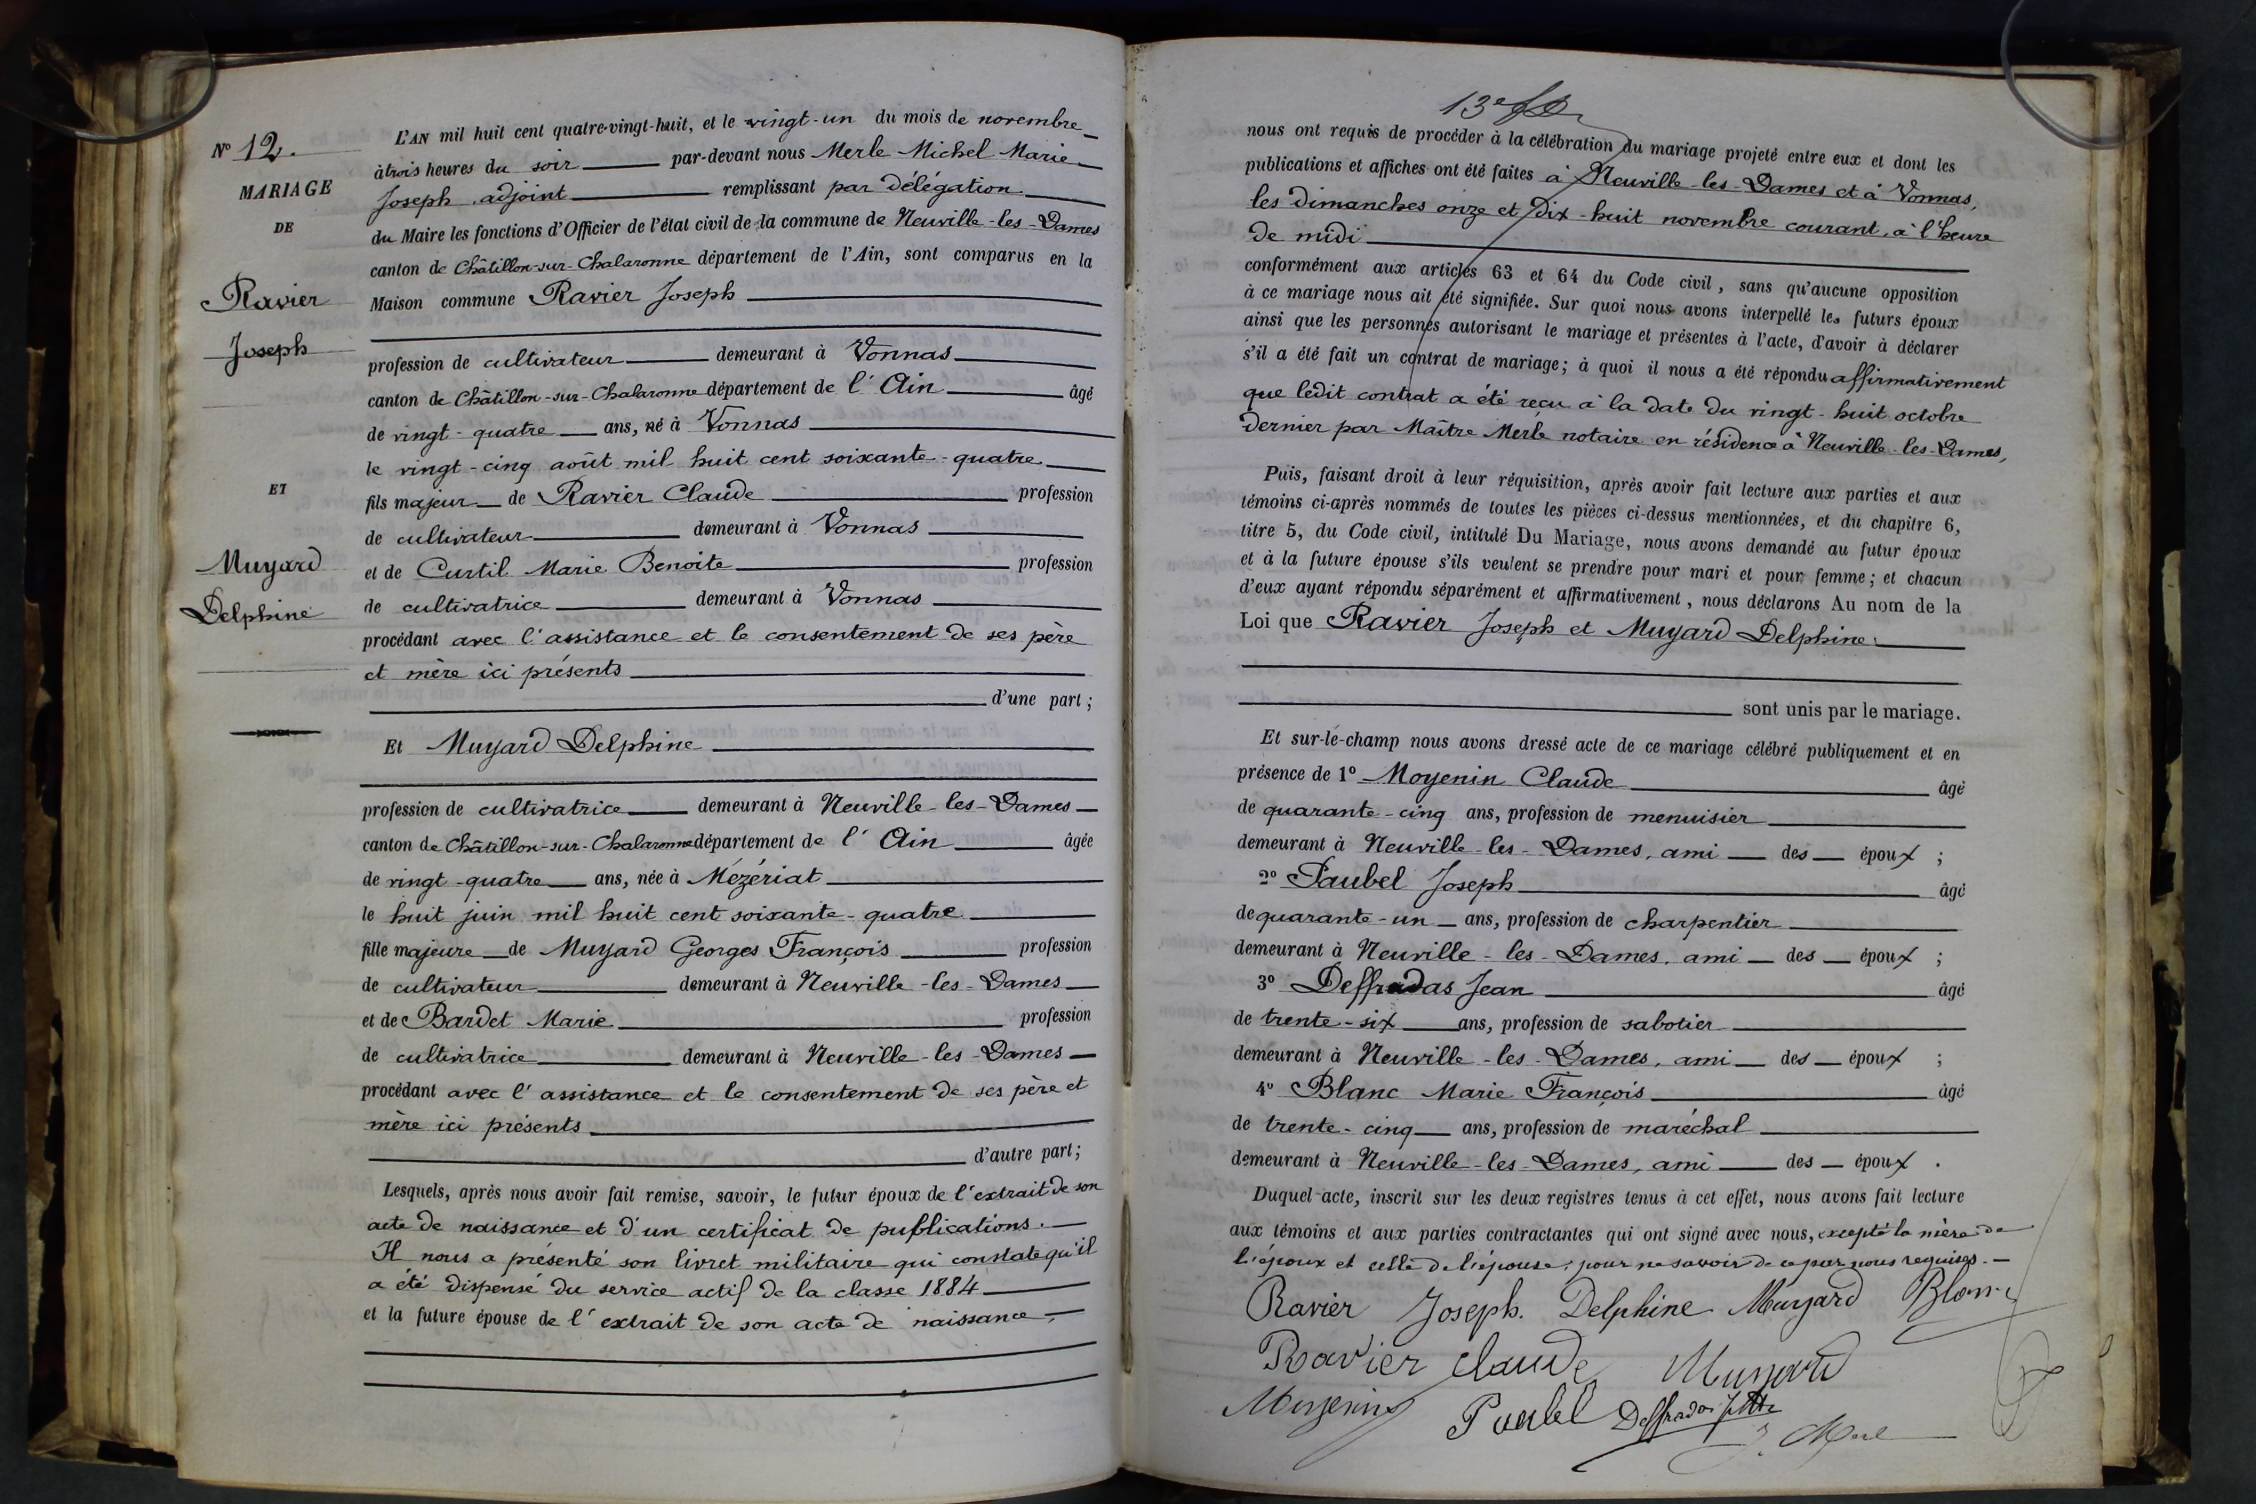 N° 12.
MARIAGE
DE
Ravier
Joseph
ET
Muyard
Delphine
L'AN mil huit cent quatre-vingt-huit, et le vingt-un du mois de novembre
à trois heures du soir par-devant nous Merle Michel Marie
Joseph, adjoint remplissant par délégation
du Maire les fonctions d'Officier de l'état civil de la commune de Neuville-les-Dames
canton de Châtillon-sur-Chalaronne département de l'Ain, sont comparus en la
Maison commune Ravier Joseph
profession de cultivateur demeurant à Vonnas
canton de Châtillon-sur-Chalaronne département de l'Ain âgé
de vingt-quatre ans, né à Vonnas
le vingt-cinq août mil huit cent soixante-quatre
fils majeur de Ravier Claude profession
de cultivateur demeurant à Vonnas
et de Curtil Marie Benoite profession
de cultivatrice demeurant à Vonnas
procédant avec l'assistance et le consentement de ses père
et mère ici présents
d'une part;
Et Muyard Delphine
profession de cultivatrice demeurant à Neuville-les-Dames
canton de Châtillon-sur-Chalaronne département de l'Ain âgée
de vingt-quatre ans, née à Mézériat
le huit juin mil huit cent soixante-quatre
fille majeure de Muyard Georges François profession
de cultivateur demeurant à Neuville-les-Dames
et de Bardet Marie profession
de cultivatrice demeurant à Neuville-les-Dames
procédant avec l'assistance et le consentement de ses père et
mère ici présents
d'autre part;
Lesquels, après nous avoir fait remise, savoir, le futur époux de l'extrait de son
acte de naissance et d'un certificat de publications.
Il nous a présenté son livret militaire qui constate qu'il
a été dispensé du service actif de la classe 1884
et la future épouse de l'extrait de son acte de naissance,
13e
nous ont requis de procéder à la célébration du mariage projeté entre eux et dont les
publications et affiches ont été faites à Neuville-les-Dames et à Vonnas,
les dimanches onze et dix-huit novembre courant, à l'heure
de midi
conformément aux articles 63 et 64 du Code civil, sans qu'aucune opposition
à ce mariage nous ait été signifiée. Sur quoi nous avons interpellé les futurs époux
ainsi que les personnes autorisant le mariage et présentes à l'acte, d'avoir à déclarer
s'il a été fait un contrat de mariage; à quoi il nous a été répondu affirmativement
que ledit contrat a été reçu à la date du vingt-huit octobre
dernier par Maître Merle notaire en résidence à Neuville-les-Dames,
Puis, faisant droit à leur réquisition, après avoir fait lecture aux parties et aux
témoins ci-après nommés de toutes les pièces ci-dessus mentionnées, et du chapitre 6,
titre 5, du Code civil, intitulé Du Mariage, nous avons demandé au futur époux
et à la future épouse s'ils veulent se prendre pour mari et pour femme; et chacun
d'eux ayant répondu séparément et affirmativement, nous déclarons Au nom de la
Loi que Ravier Joseph et Muyard Delphine
sont unis par le mariage.
Et sur-le-champ nous avons dressé acte de ce mariage célébré publiquement et en
présence de 1° Moyenin Claude âgé
de quarante-cinq ans, profession de menuisier
demeurant à Neuville-les-Dames, ami des époux ;
2° Paubel Joseph âgé
de quarante-un ans, profession de charpentier
demeurant à Neuville-les-Dames, ami des époux ;
3° Deffradas Jean âgé
de trente-six ans, profession de sabotier
demeurant à Neuville-les-Dames, ami des époux ;
4° Blanc Marie François âgé
de trente-cinq ans, profession de maréchal
demeurant à Neuville-les-Dames, ami des époux .
Duquel acte, inscrit sur les deux registres tenus à cet effet, nous avons fait lecture
aux témoins et aux parties contractantes qui ont signé avec nous, excepté la mère de
l'époux et celle de l'épouse, pour ne savoir de ce par nous requises.
Ravier Joseph. Delphine Muyard Blanc
Ravier Claude Muyard
Moyenin Paubel Deffradas J. Merle